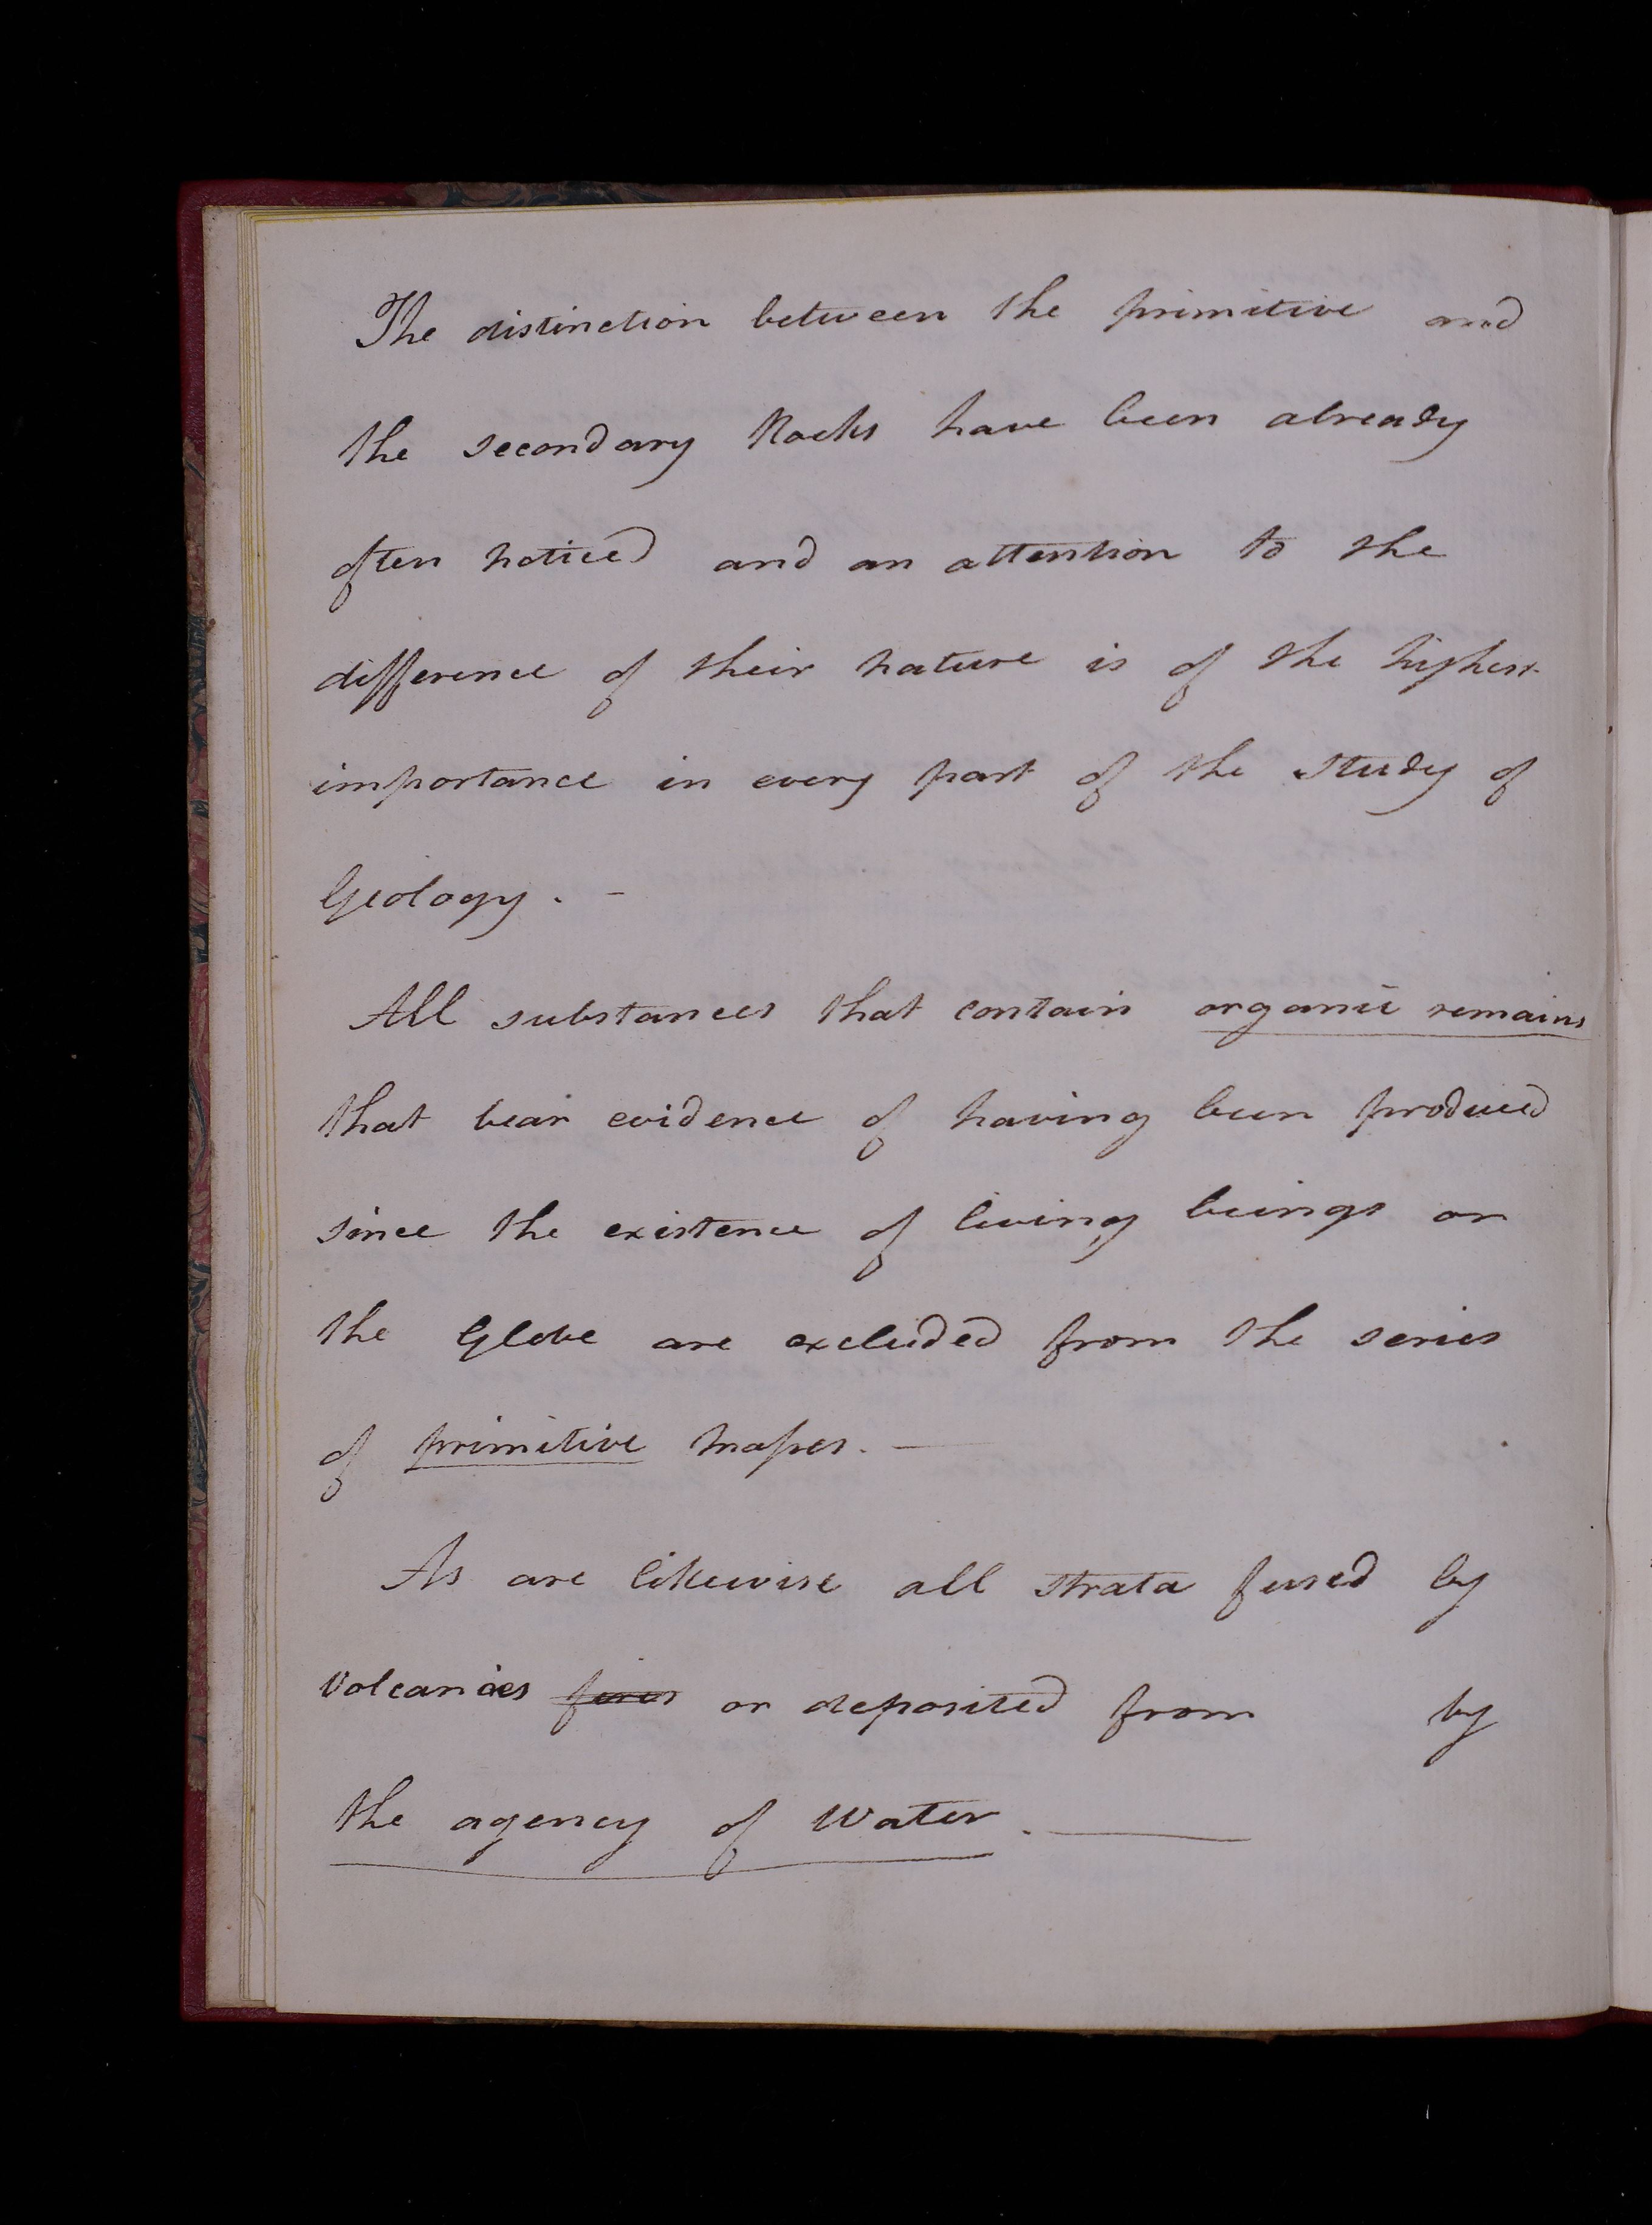 The distinction between the primitive and
the secondary Rocks have been already
often noticed and an attention to the
difference of their nature is of the highest
importance in every part of the study of
Geology. -
All substances that contain organic remains
that bear evidence of having been produced
since the existence of living beings on
the Globe are excluded from the series
of primitive maſses. —
As are likewise all strata fused by
Volcanoes fires or deposited from by
the agency of Water. —